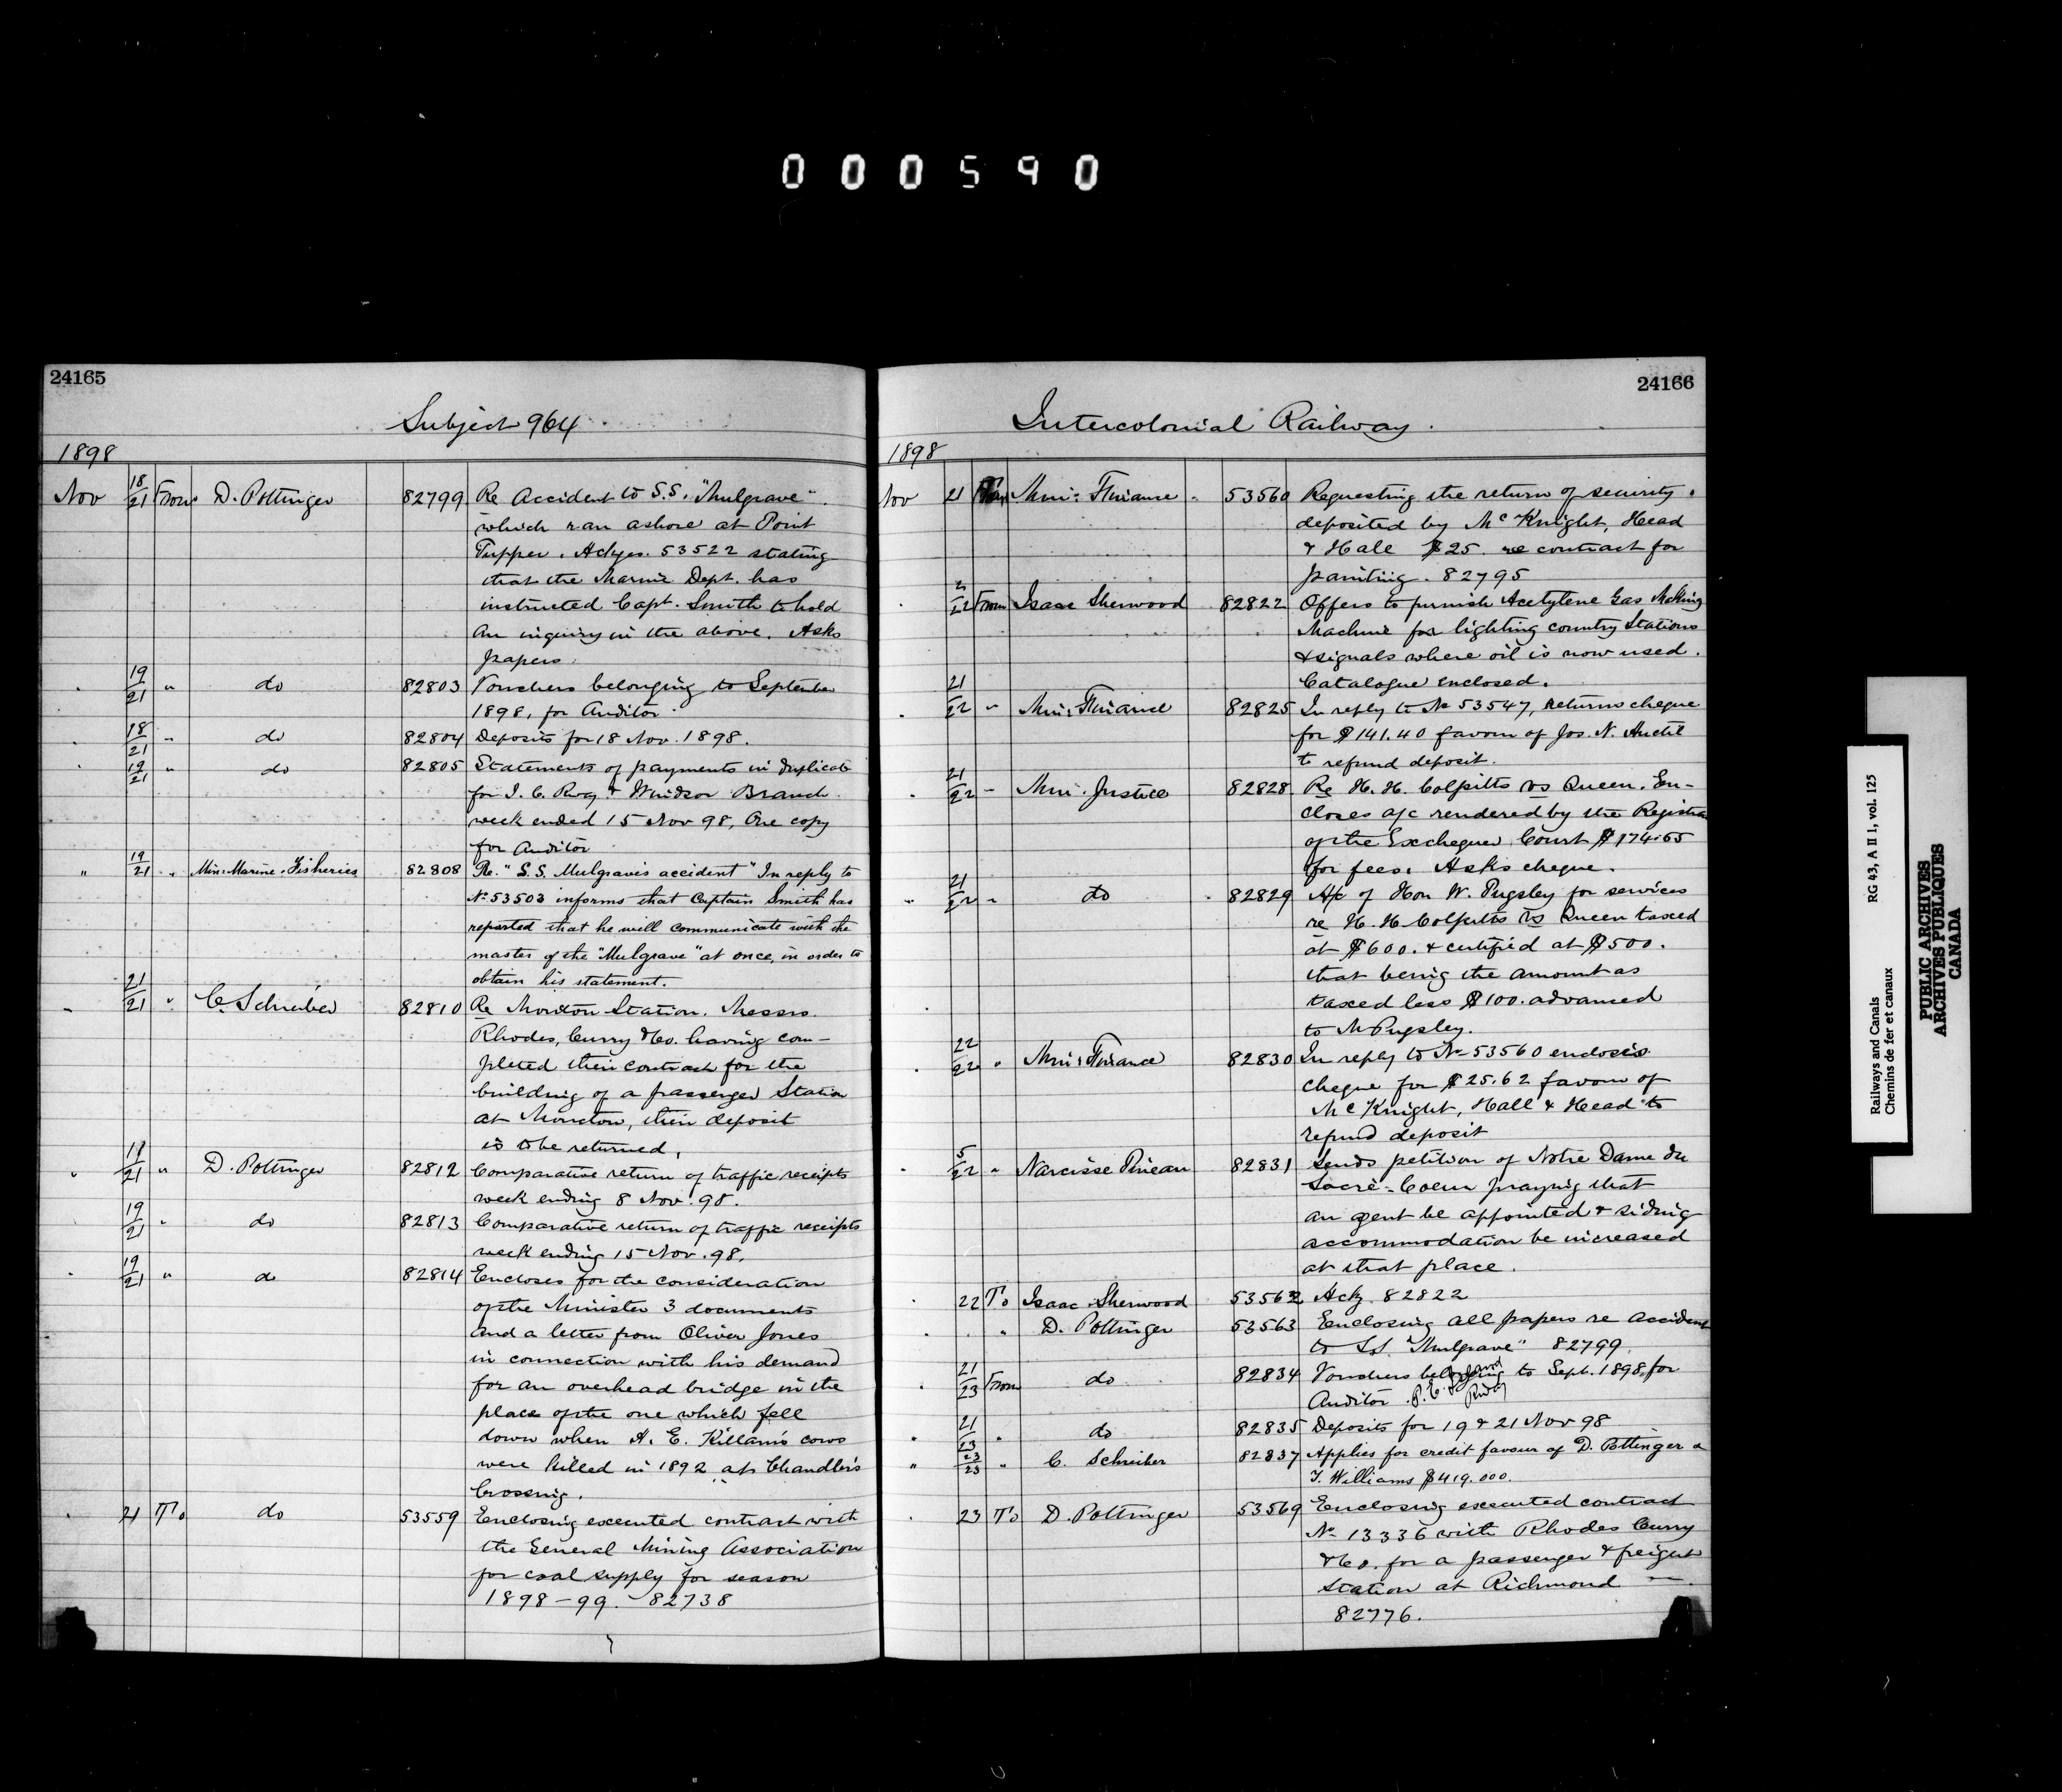 000590
24165
Subject 964
1898
Nov 18/21 From D. Pottinger 82799 Re Accident to S.S. "Mulgrave"
which ran ashore at Point
Tupper. Ackges. 53522 stating
that the Marine Dept. has
instructed Capt. Smith to hold
an inquiry in the above. Asks
papers.
" 19/21 " do 82803 Vouchers belonging to September
1898, for Auditor
" 18/21 " do 82804 Deposits for 18 Nov. 1898.
" 19/21 " do 82805 Statements of payments in duplicate
for I. C. Rwy & Windsor Branch
week ended 15 Nov 98, One copy
for Auditor
" 19/21 " Min: Marine & Fisheries 82808 Re. "S.S. Mulgraves accident" In reply to
No 53503 informs that Captain Smith has
reported that he will communicate with the
master of the "Mulgrave" at once, in order to
obtain his statement.
" 21/21 " C. Schreiber 82810 Re Moncton Station. Messrs.
Rhodes, Curry & Co. having com-
pleted their contract for the
building of a passenger Station
at Moncton, their deposit
is to be returned.
" /21 " D. Pottinger 82812 Comparative return of traffic receipts
week ending 8 Nov. 98.
19/21 " do 82813 Comparative return of traffic receipts
week ending 15 Nov. 98.
" 19/21 " do 82814 Encloses for the consideration
of the Minister 3 documents
and a letter from Oliver Jones
in connection with his demand
for an overhead bridge in the
place of the one which fell
down when A. E. Killam's cows
were killed in 1892 at Chandler's
Crossing.
" 21 To do 53559 Enclosing executed contract with
the General Mining Association
for coal supply for season
1898-99. - 82738
24166
Intercolonial Railway.
1898
Nov 21 Min: Finance 53560 Requesting the return of security
deposited by McKnight, Head
& Hale $25. re contract for
painting. 82795
" /22 From Isaac Sherwood 82822 Offers to furnish Acetylene Gas Making
Machine for lighting country Stations
& signals where oil is now used.
Catalogue enclosed.
" 21/22 " Min: Finance 82825 In reply to No 53547, returns cheque
for $141.40 favour of Jos. N. Auctil
to refund deposit.
" 21/22 " Min. Justice 82828 Re H. H. Colpitts vs Queen. En-
closes a/c rendered by the Registrar
of the Exchequer Court $174.65
for fees. Asks cheque.
" 21/22 " do 82829 A/c of Hon W. Pugsley for services
re H. H. Colpitts vs Queen taxed
at $600. & certified at $500.
that being the amount as
taxed less $100. advanced
to Mr Pugsley.
" 22/22 " Min: Finance 82830 In reply to No 53560 encloses
cheque for $25.62 favour of
McKnight, Hall & Head to
refund deposit
" 5/22 " Narcisse Pineau 82831 Sends petition of Notre Dame du
Sacré-Coeur praying that
an agent be appointed & siding
accommodation be increased
at that place.
" 22 To Isaac Sherwood 53562 Ackg 82822
" " " D. Pottinger 53563 Enclosing all papers re accident
to S.S. "Mulgrave" 82799
" 21/23 From do 82834 Vouchers belonging to Sept. 1898, for
Auditor. P. E. Island Rwy
" 21/23 " do 82835 Deposits for 19 & 21 Nov 98
" 23/23 " C. Schreiber 82837 Applies for credit favour of D. Pottinger &
T. Williams $419.000.
" 23 To D. Pottinger 53569 Enclosing executed contract
No 13336 with Rhodes Curry
& Co. for a passenger & freight
Station at Richmond
82776.
Railways and Canals RG 43, A II 1, vol. 125
Chemins de fer et canaux
PUBLIC ARCHIVES
ARCHIVES PUBLIQUES
CANADA